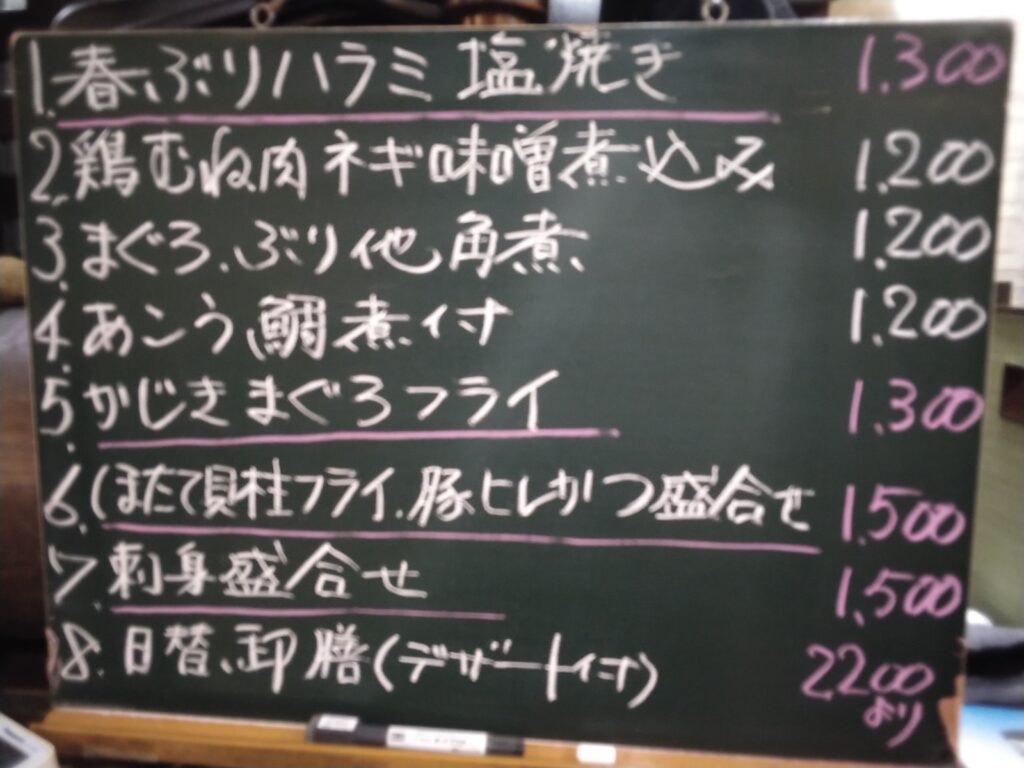 1. 春ぶりハラミ 塩焼き 1.300
2. 鶏むね肉ネギ味噌煮込み 1.200
3. まぐろ、ぶり他角煮 1.200
4. あこう鯛煮付 1.200
5. かじきまぐろフライ 1.300
6. ほたて貝柱フライ、豚ヒレかつ盛合せ 1.500
7. 刺身盛合せ 1.500
8. 日替、御膳(デザート付) 2.200
より